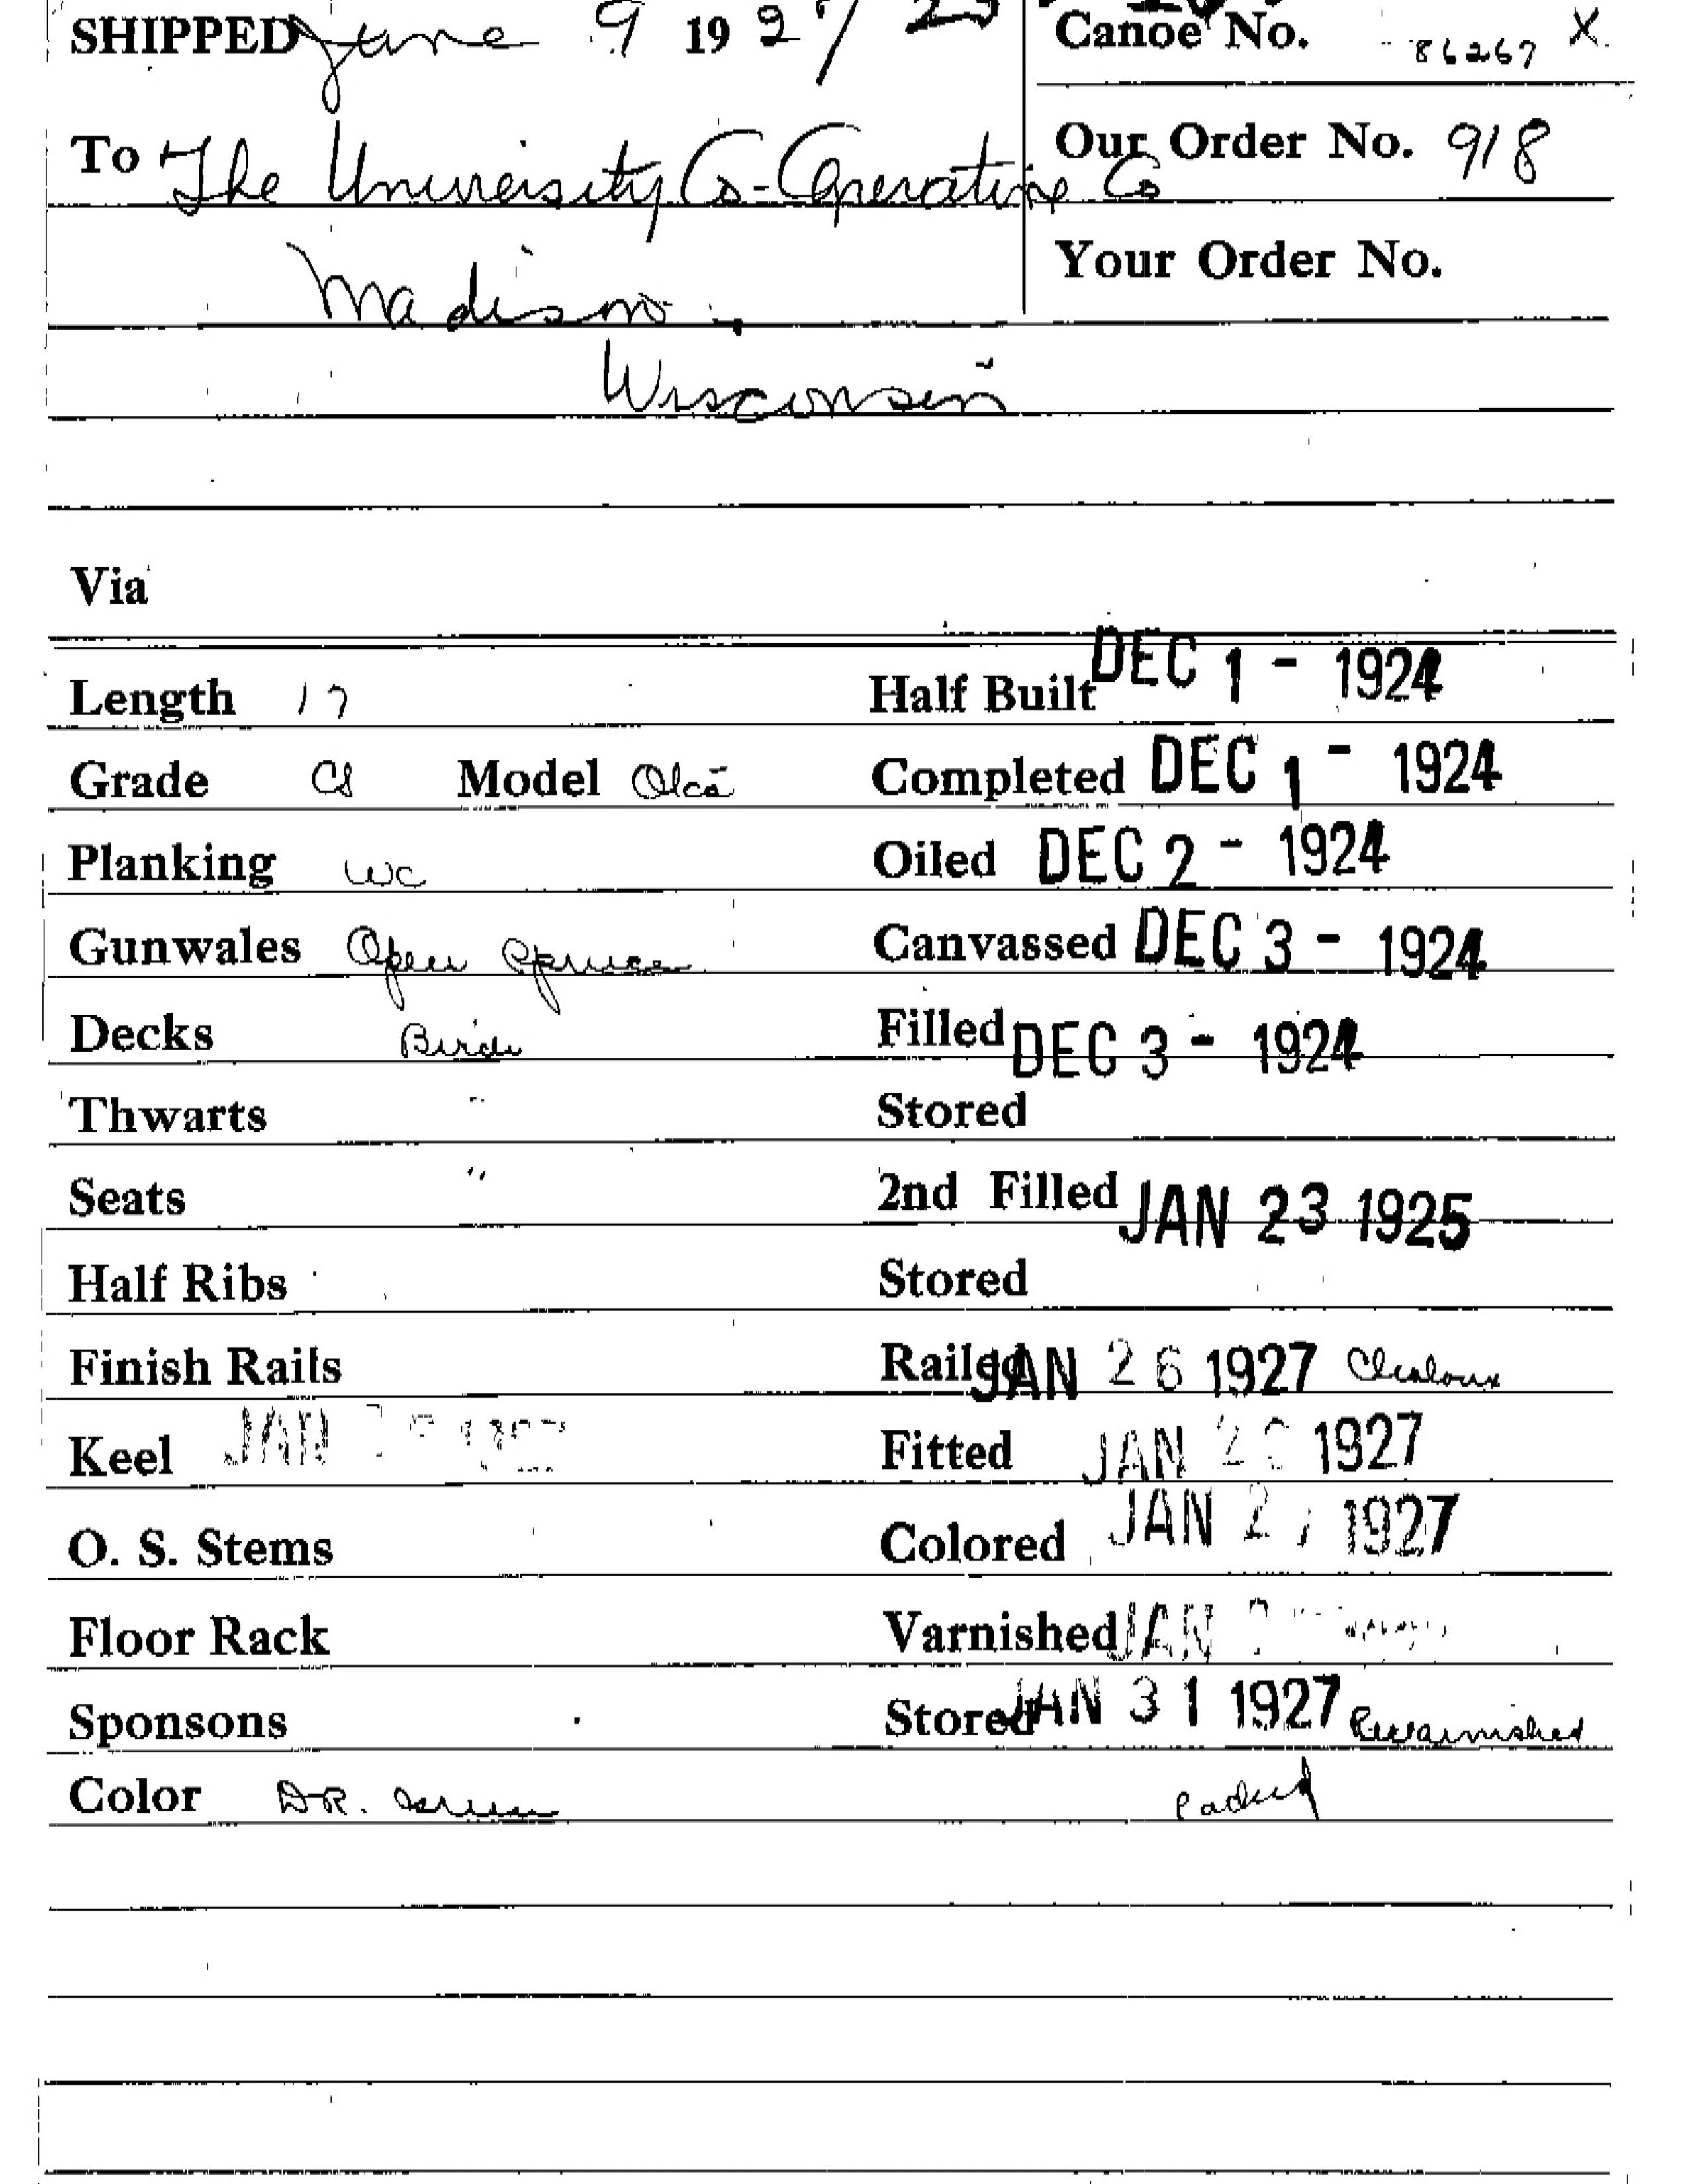 SHIPPED June 9 1927
Canoe No. 86267 X
To The University Co-Operative Co
Our Order No. 918
Madison
Your Order No.
Wisconsin
Via
Length 17
Half Built DEC 1 - 1924
Grade CS Model
Completed DEC 1 - 1924
Planking WC
Oiled DEC 2 - 1924
Gunwales Open Spruce
Canvassed DEC 3 - 1924
Decks Birch
Filled DEC 3 - 1924
Thwarts "
Stored
Seats "
2nd Filled JAN 23 1925
Half Ribs
Stored
Finish Rails
Railed JAN 26 1927
Keel JAN
Fitted JAN 1927
O. S. Stems
Colored JAN 27 1927
Floor Rack
Varnished JAN
Sponsons
Stored JAN 31 1927 Revarnished
Color DR. Green